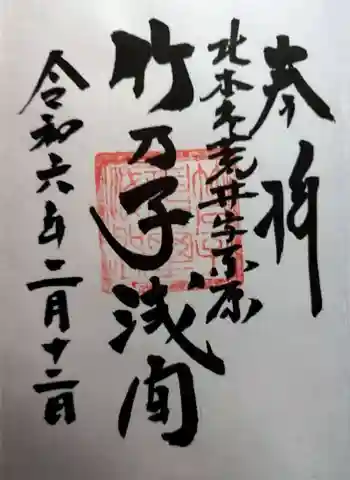 奉拝
北本市荒井字宮原
竹乃子浅間
令和六年二月十二日